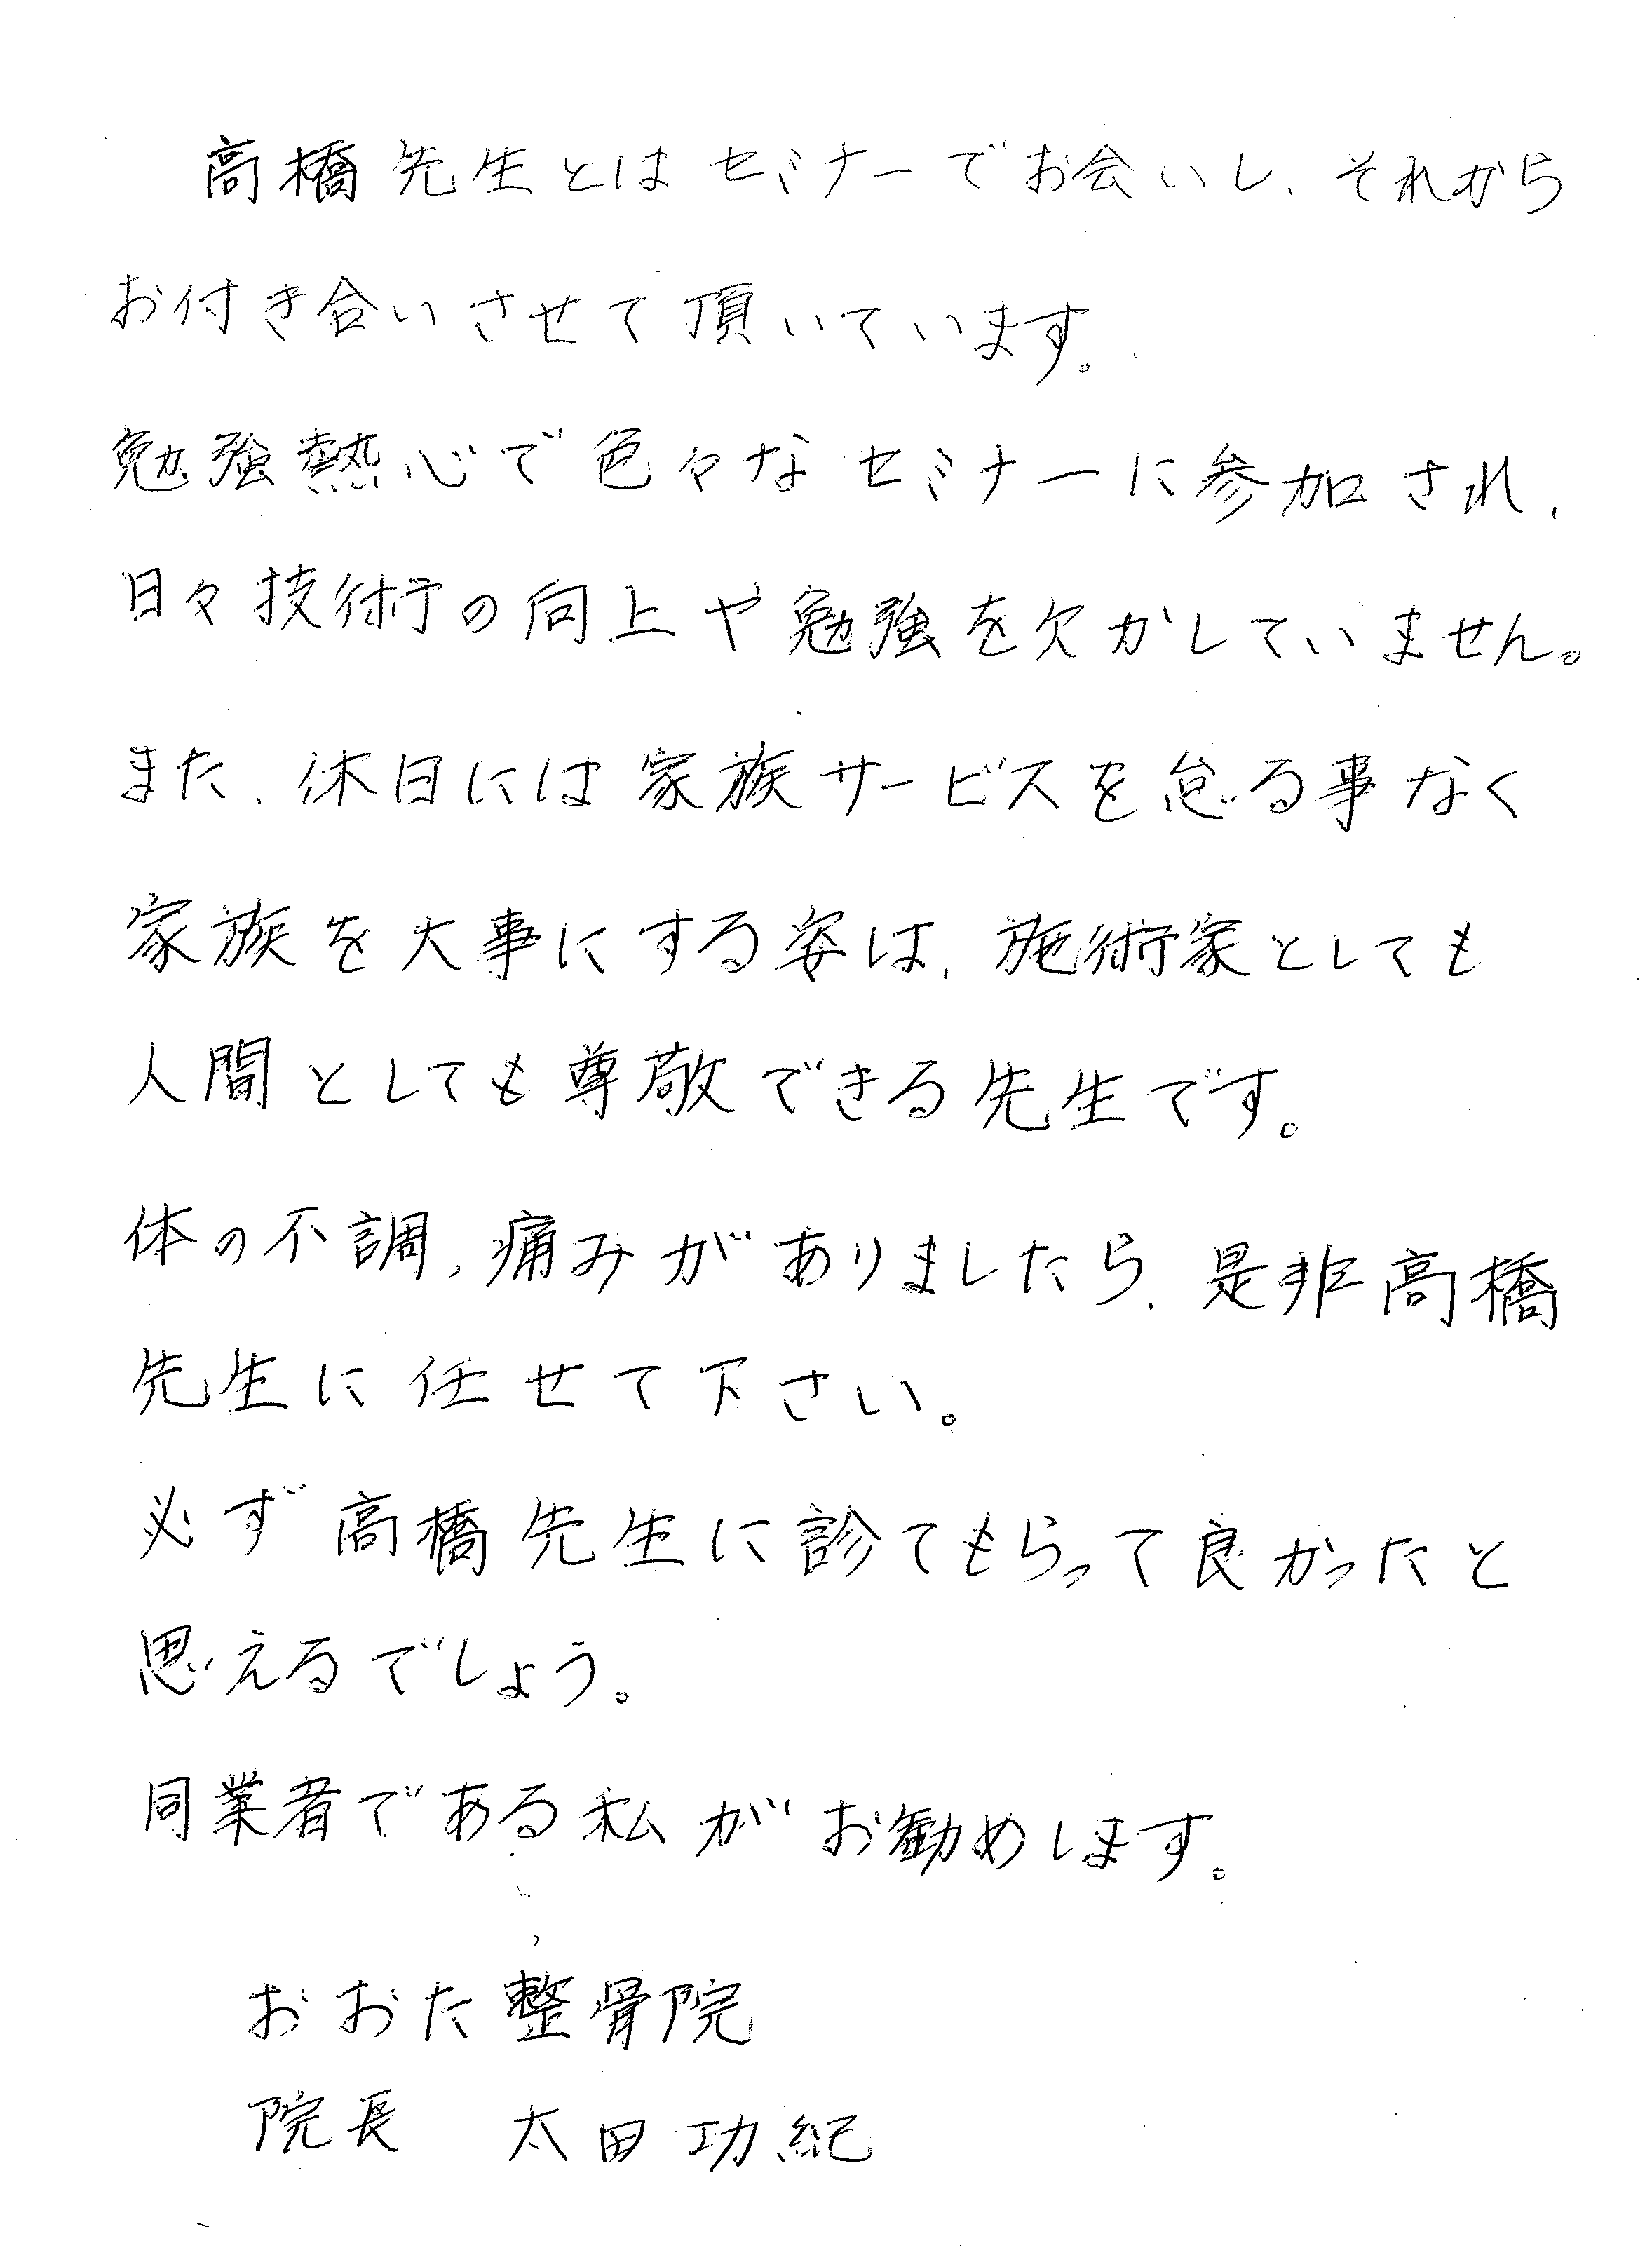 高橋先生とはセミナーでお会いし、それから
お付き合いさせて頂いています。
勉強熱心で色々なセミナーに参加され、
日々技術の向上や勉強を欠かしていません。
また、休日には家族サービスを怠る事なく
家族を大事にする姿は、施術家としても
人間としても尊敬できる先生です。
体の不調、痛みがありましたら、是非高橋
先生に任せて下さい。
必ず高橋先生に診てもらって良かったと
思えるでしょう。
同業者である私がお勧めします。
おおた整骨院
院長 太田功紀